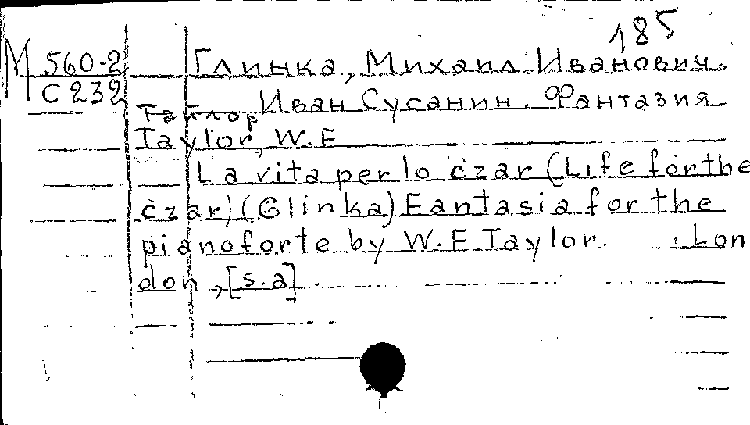 185
М 560-2 Глинка, Михаил Иванович.
С 232 Иван Сусанин. Фантазия
Тайлор
Taylor, W.F
La vita per lo czar (Life for the
czar) (Glinka) Fantasia for the
pianoforte by W.F. Taylor. Lon
don, [s.a]